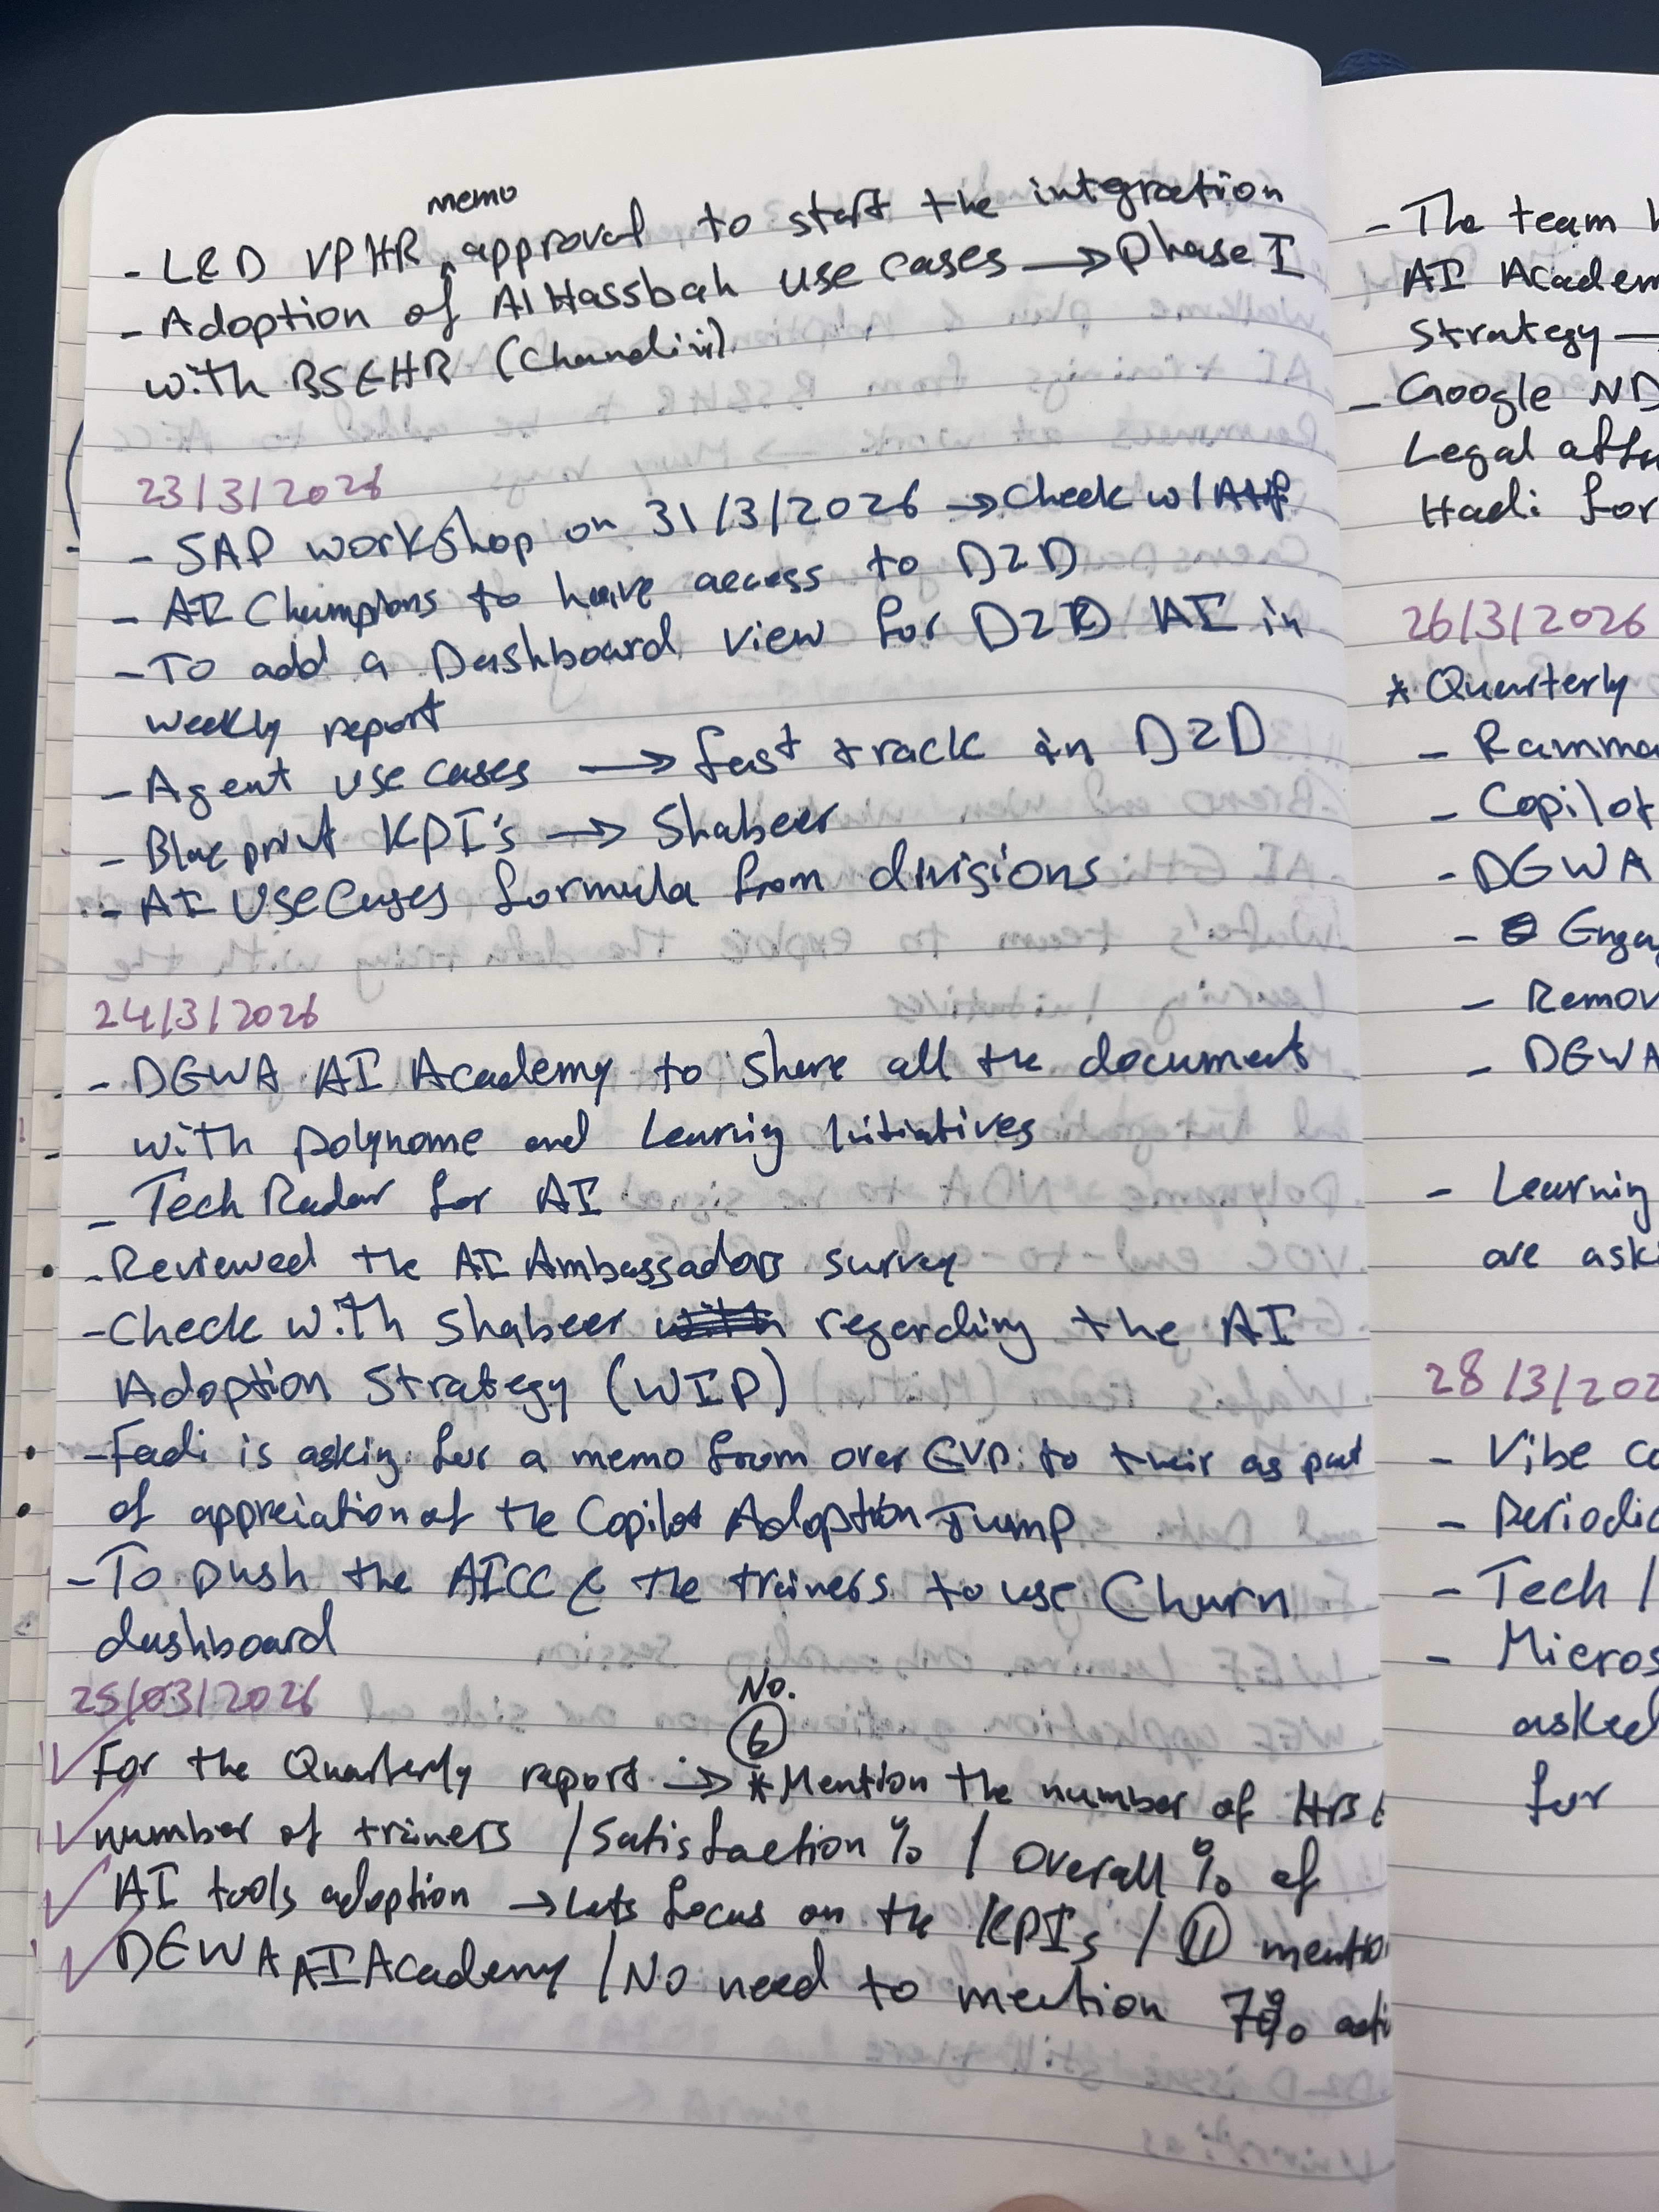 memo
- L&D VPHR approval to start the integration
- Adoption of AlHassbah use cases → Phase I
with BS&HR (Chandini).
23/3/2026
- SAP workshop on 31/3/2026 → Check w/
- AI Champions to have access to D2D
- To add a Dashboard view for D2D AI in
weekly report
- Agent use cases → fast track in D2D
- Blue print KPI's → Shabeer
- AI Use Cases formula from divisions
24/3/2026
- DEWA AI Academy to share all the document
with polynome and Learning Initiatives
- Tech Radar for AI
- Reviewed the AI Ambassadors survey
- Check with Shabeer regarding the AI
Adoption Strategy (WIP)
- Fadi is asking for a memo from over EVP to their as part
of appreiation of the Copilot Adoption Jump
- To push the AICC & the trainers to use Churn
dashboard
25/03/2026
No.
6
For the Quarterly report → * Mention the number of Hrs &
number of trainers / Satisfaction % / Overall % of
AI tools adoption → Lets focus on the KPIs / 11 mention
DEWA AI Academy / No need to mention
- The team
AI Academ
Strategy —
- Google ND
Legal
Hadi for
26/3/2026
* Quarterly
- Ramma
- Copilot
- DEWA
- Engag
- Remov
- DEWA
- Learning
are aski
28/3/202
- Vibe Co
- Periodic
- Tech /
- Micros
asked
for